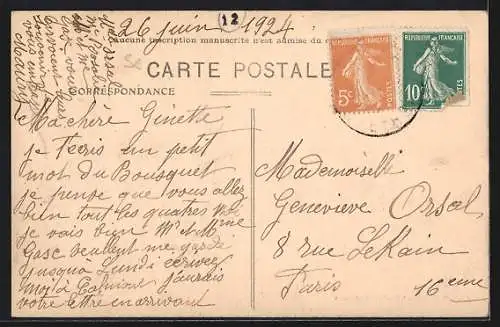 26 juin 1924
12
Aucune inscription manuscrite n'est admise du
CARTE POSTALE
CORRESPONDANCE
REPUBLIQUE FRANÇAISE
5c
POSTES
REPUBLIQUE FRANÇAISE
10c
POSTES
Ma chère Ginette
je t'ecris un petit
mot du Bousquet
je pense que vous allez
bien tout les quatres
je vais bien Mr et Mme
Gasc veulent me garde
jusqua Lundi écrivez
moi à j'aurais
votre lettre en arrivant
Mademoiselle
Genevieve Orsal
8 rue Le Kain
Paris 16eme